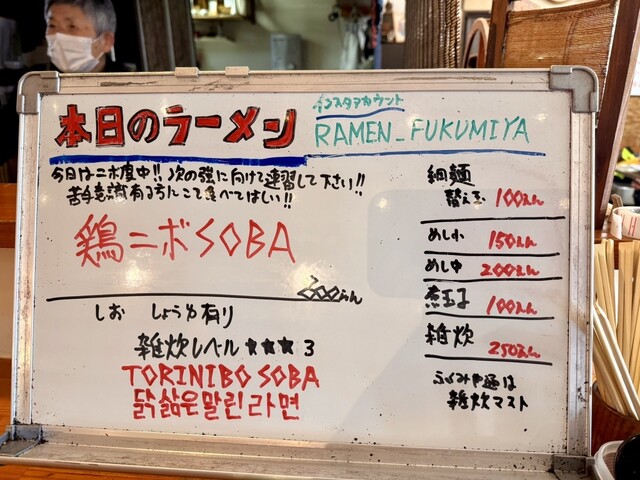 本日のラーメン
インスタアカウント
RAMEN_FUKUMIYA
今日はニボ度中!! 次の強に向けて練習して下さい!!
苦手意識有る方にこそ食べてほしい!!
鶏ニボSOBA
しお しょうゆ有り
雑炊レベル ★★★3
TORINIBO SOBA
닭삶은말린라면
細麺
替え玉 100えん
めし小 150えん
めし中 200えん
煮玉子 100えん
雑炊 250えん
ふくみや通は
雑炊マスト